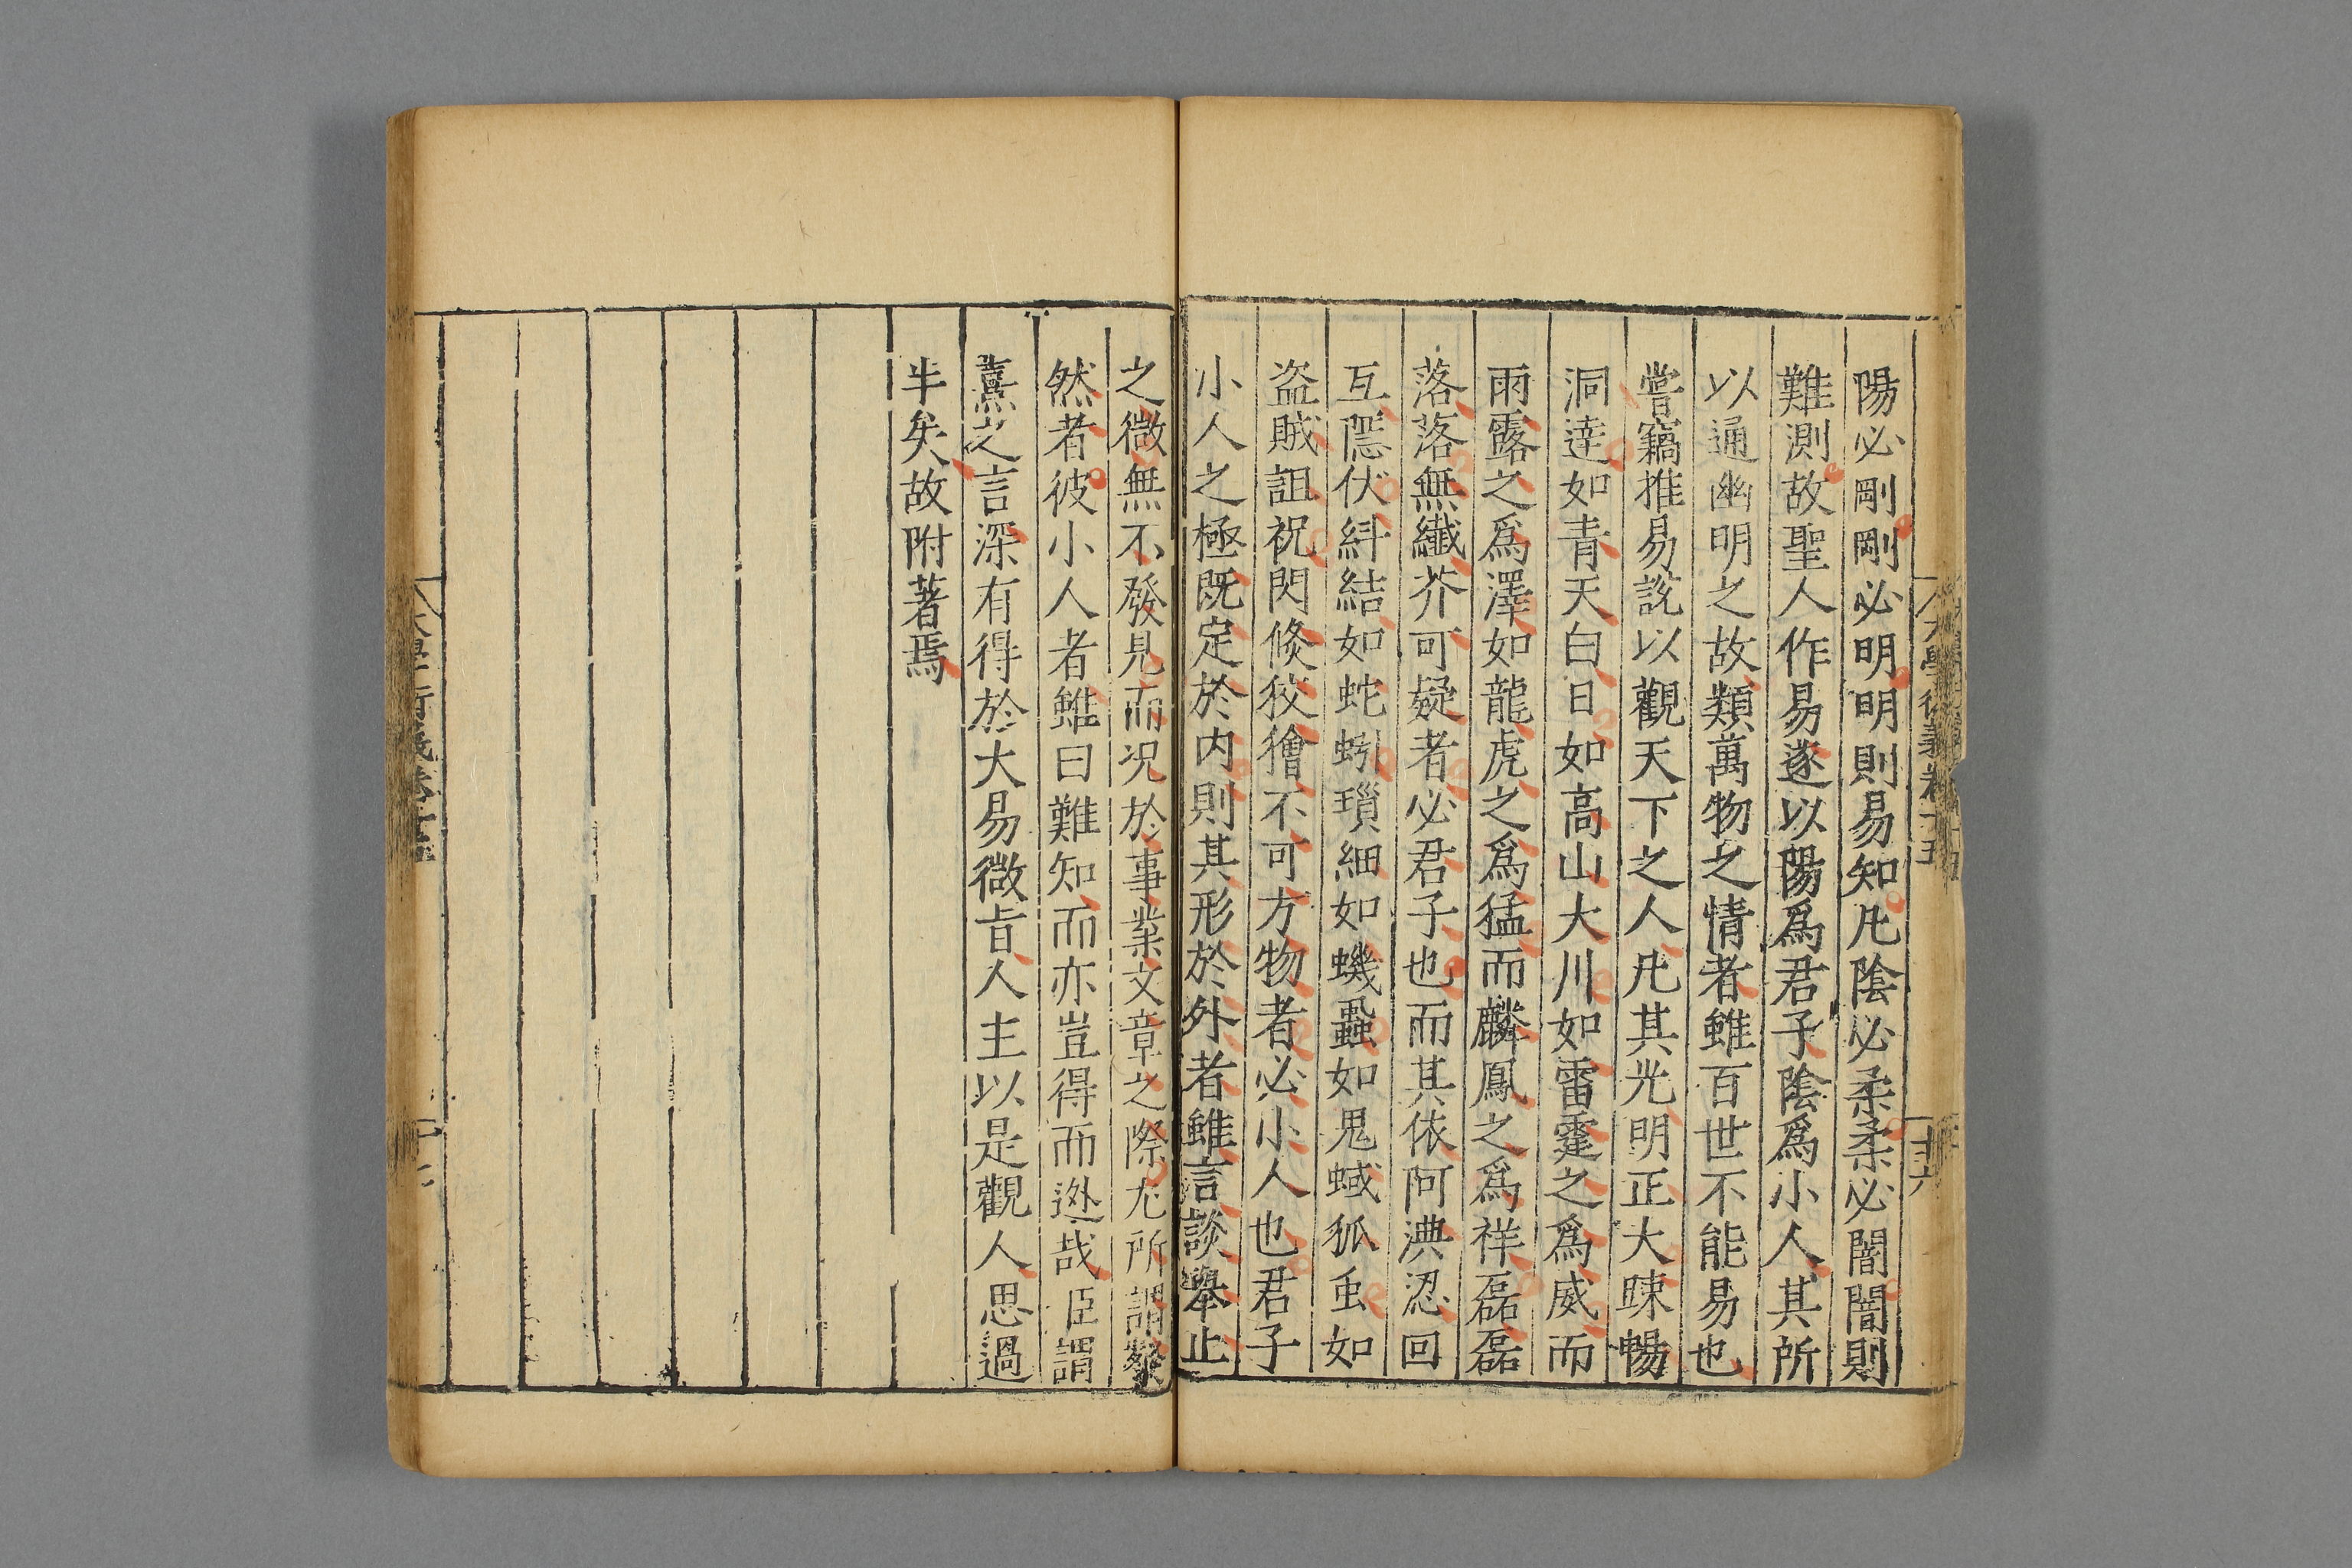 大學衍義卷十五
十六
陽必剛剛必明明則易知凡陰必柔柔必闇闇則
難測故聖人作易遂以陽爲君子陰爲小人其所
以通幽明之故類萬物之情者雖百世不能易也
嘗竊推易說以觀天下之人凡其光明正大疎暢
洞達如青天白日如高山大川如雷霆之爲威而
雨露之爲澤如龍虎之爲猛而麟鳳之爲祥磊磊
落落無纖芥可疑者必君子也而其依阿淟忍回
互隱伏糾結如蛇蚓瑣細如蟣蝨如鬼蜮狐虫如
盜賊詛祝閃倐狡獪不可方物者必小人也君子
小人之極既定於内則其形於外者雖言談舉止
之微無不發見而况於事業文章之際尤所謂粲
然者彼小人者雖曰難知而亦豈得而迯哉臣謂
熹之言深有得於大易微㫖人主以是觀人思過
半矣故附著焉